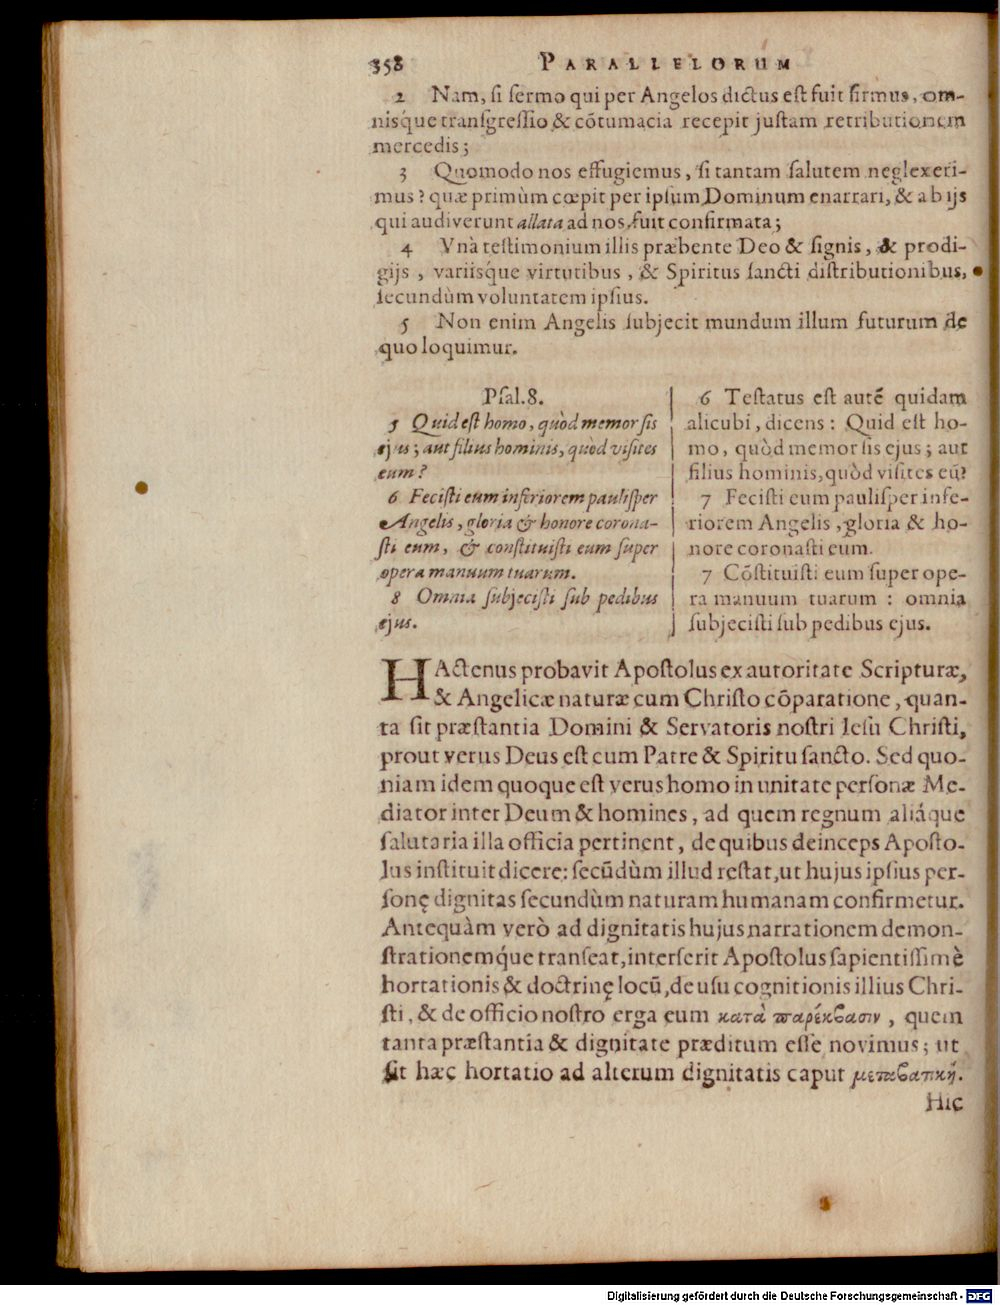 358 PARALLELORUM
2 Nam, ſi ſermo qui per Angelos dictus eſt fuit firmus, om-
nisque tranſgreſſio & cõtumacia recepit juſtam retributionem
mercedis;
3 Quomodo nos effugiemus, ſi tantam ſalutem neglexeri-
mus? quæ primùm cœpit per ipſum Dominum enarrari, & ab ijs
qui audiverunt allata ad nos fuit confirmata;
4 Vnà teſtimonium illis præbente Deo & ſignis, & prodi-
gijs, variisq́ue virtutibus, & Spiritus ſancti diſtributionibus,
ſecundùm voluntatem ipſius.
5 Non enim Angelis ſubjecit mundum illum futurum de
quo loquimur.
Pſal. 8.
5 Quid eſt homo, quòd memor ſis
ejus; aut filius hominis, quòd viſites
eum?
6 Feciſti eum inferiorem pauliſper
Angelis, gloria & honore corona-
ſti eum, & conſtituiſti eum ſuper
opera manuum tuarum.
8 Omnia ſubjeciſti ſub pedibus
ejus.
6 Teſtatus eſt autẽ quidam
alicubi, dicens: Quid eſt ho-
mo, quòd memor ſis ejus; aut
filius hominis, quòd viſites eũ?
7 Feciſti eum pauliſper infe-
riorem Angelis, gloria & ho-
nore coronaſti eum.
7 Cõſtituiſti eum ſuper ope-
ra manuum tuarum: omnia
ſubjeciſti ſub pedibus ejus.
HActenus probavit Apoſtolus ex autoritate Scripturæ,
& Angelicæ naturæ cum Chriſto cõparatione, quan-
ta ſit præſtantia Domini & Servatoris noſtri Ieſu Chriſti,
prout verus Deus eſt cum Patre & Spiritu ſancto. Sed quo-
niam idem quoque eſt verus homo in unitate perſonæ Me-
diator inter Deum & homines, ad quem regnum aliáque
ſalutaria illa officia pertinent, de quibus deinceps Apoſto-
lus inſtituit dicere: ſecũdùm illud reſtat, ut hujus ipſius per-
ſonę dignitas ſecundùm naturam humanam confirmetur.
Antequàm verò ad dignitatis hujus narrationem demon-
ſtrationemq́ue tranſeat, interſerit Apoſtolus ſapientiſſimè
hortationis & doctrinę locũ, de uſu cognitionis illius Chri-
ſti, & de officio noſtro erga eum κατὰ παρέκβασιν, quem
tanta præſtantia & dignitate præditum eſſe novimus; ut
ſit hæc hortatio ad alterum dignitatis caput μεταβατικὴ.
Hic
Digitalisierung gefördert durch die Deutsche Forschungsgemeinschaft - DFG